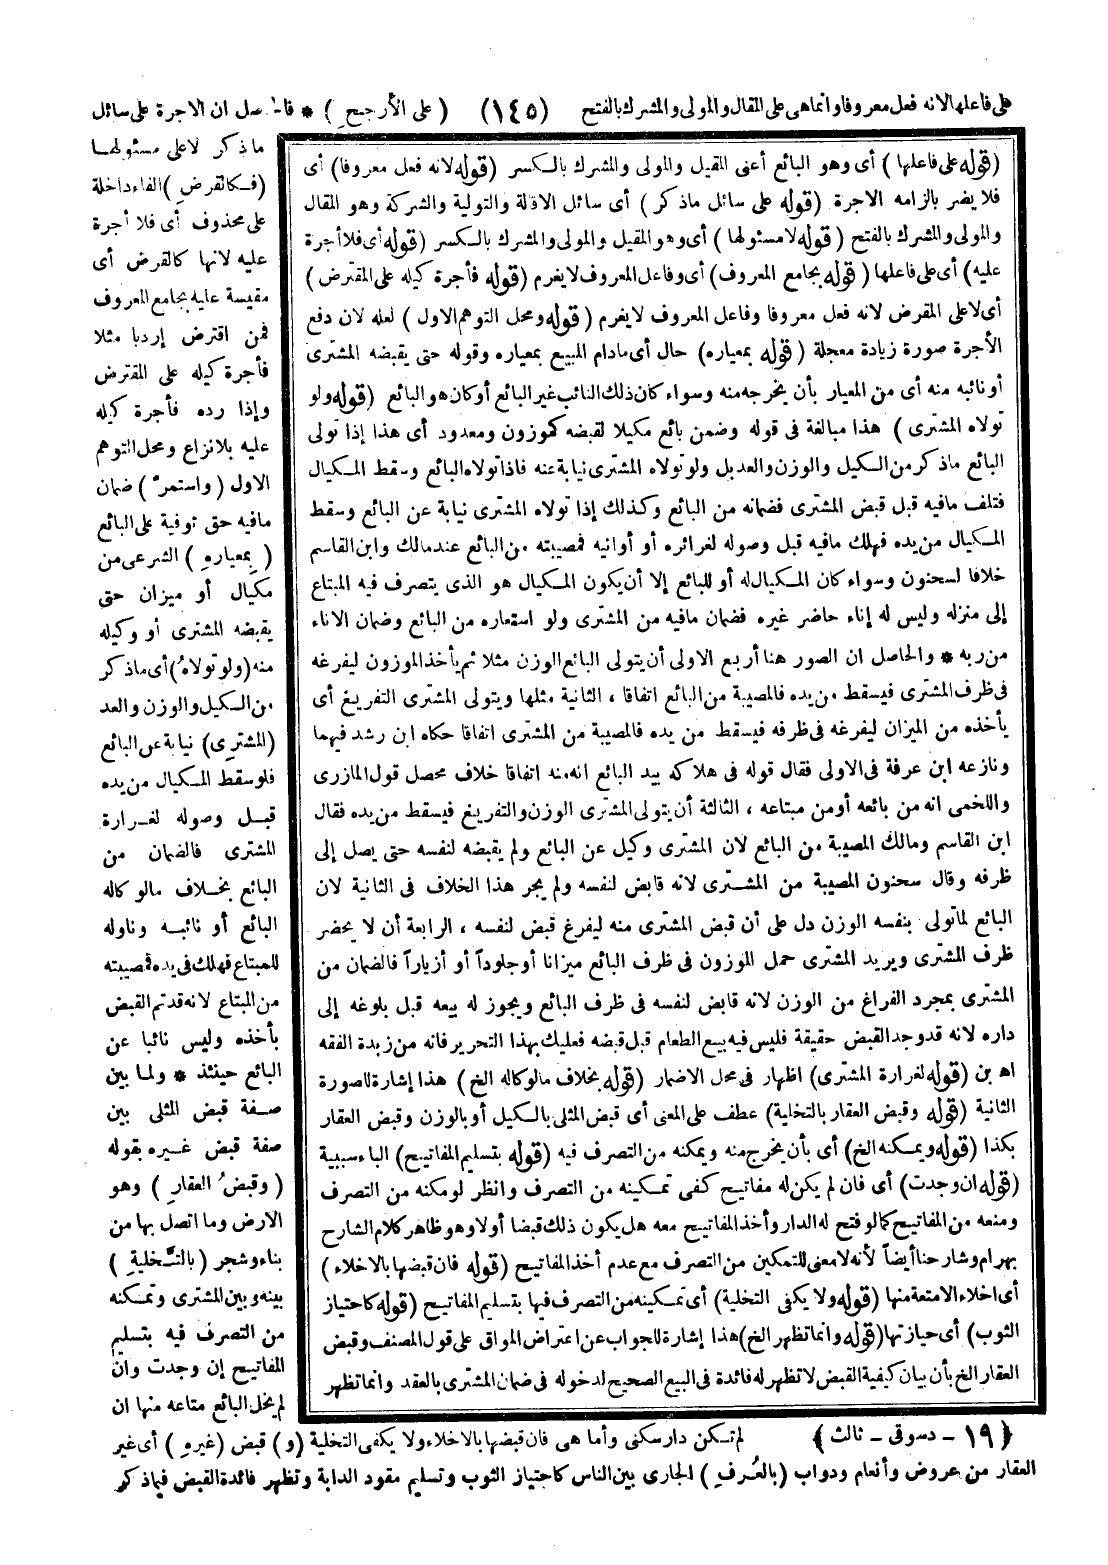 على فاعلها لانه فعل معروفا وانما هي على المقال والمولى والمشرك بالفتح (١٤٥) (على الأرجحِ) * فالحاصل ان الاجرة على سائل
ماذكر لاعلى مسئولها
(فكالقرض) الفاء داخلة
على محذوف أى فلا أجرة
عليه لانها كالقرض أى
مقيسة عليه بجامع المعروف
فمن اقترض إردبا مثلا
فأجرة كيله على المقترض
وإذا رده فأجرة كيله
عليه بلانزاع ومحل التوهم
الاول (واستمرّ) ضمان
مافيه حتى توفية على البائع
(بمعيارهِ) الشرعى من
مكيال أو ميزان حتى
يقبضه المشترى أو وكيله
منه (ولو تولاهُ) أى ماذكر
من الكيل والوزن والعد
(المشترِى) نيابة عن البائع
فلو سقط المكيال من يده
قبل وصوله لغرارة
المشترى فالضمان من
البائع بخلاف مالو كاله
البائع أو نائبه وناوله
للمبتاع فهلك فى يده فمصيبته
من المبتاع لانه قد تم القبض
بأخذه وليس نائبا عن
البائع حينئذ * ولما بين
صفة قبض المثلى بين
صفة قبض غيره بقوله
(وقبضُ العقارِ) وهو
الارض وما اتصل بها من
بناء وشجر (بالتَّخليةِ)
بينه وبين المشترى وتمكنه
من التصرف فيه بتسليم
المفاتيح إن وجدت وان
لم يخل البائع متاعه منها ان
(قوله على فاعلها) أى وهو البائع أعنى المقيل والمولى والمشرك بالكسر (قوله لانه فعل معروفا) أى
فلا يضر بالزامه الاجرة (قوله على سائل ماذكر) أى سائل الاقالة والتولية والشركة وهو المقال
والمولى والمشرك بالفتح (قوله لا مسئولها) أى وهو المقيل والمولى والمشرك بالكسر (قوله أى فلا أجرة
عليه) أى على فاعلها (قوله بجامع المعروف) أى وفاعل المعروف لا يغرم (قوله فأجرة كيله على المقترض)
أى لاعلى المقرض لانه فعل معروفا وفاعل المعروف لا يغرم (قوله ومحل التوهم الاول) لعله لان دفع
الأجرة صورة زيادة معجلة (قوله بمعياره) حال أى مادام المبيع بمعياره وقوله حتى يقبضه المشترى
أو نائبه منه أى من المعيار بأن يخرجه منه وسواء كان ذلك النائب غير البائع أو كان هو البائع (قوله ولو
تولاه المشترى) هذا مبالغة فى قوله وضمن بائع مكيلا لقبضه كموزون ومعدود أى هذا إذا تولى
البائع ماذكر من الكيل والوزن والعد بل ولو تولاه المشترى نيابة عنه فاذا تولاه البائع وسقط المكيال
فتلف مافيه قبل قبض المشترى فضمانه من البائع وكذلك إذا تولاه المشترى نيابة عن البائع وسقط
المكيال من يده فهلك مافيه قبل وصوله لغرائره أو أوانيه فمصيبته من البائع عند مالك وابن القاسم
خلافا لسحنون وسواء كان المكيال له أو للبائع إلا أن يكون المكيال هو الذى يتصرف فيه المبتاع
إلى منزله وليس له إناء حاضر غيره فضمان مافيه من المشترى ولو استعاره من البائع وضمان الاناء
من ربه * والحاصل ان الصور هنا أربع الاولى أن يتولى البائع الوزن مثلا ثم يأخذ الموزون ليفرغه
فى ظرف المشترى فيسقط من يده فالمصيبة من البائع اتفاقا ، الثانية مثلها ويتولى المشترى التفريغ أى
يأخذه من الميزان ليفرغه فى ظرفه فيسقط من يده فالمصيبة من المشترى اتفاقا حكاه ابن رشد فيهما
ونازعه ابن عرفة فى الاولى فقال قوله فى هلاكه بيد البائع انه منه اتفاقا خلاف محصل قول المازرى
واللخمى انه من بائعه أو من مبتاعه ، الثالثة أن يتولى المشترى الوزن والتفريغ فيسقط من يده فقال
ابن القاسم ومالك المصيبة من البائع لان المشترى وكيل عن البائع ولم يقبضه لنفسه حتى يصل إلى
ظرفه وقال سحنون المصيبة من المشترى لانه قابض لنفسه ولم يجر هذا الخلاف فى الثانية لان
البائع لما تولى بنفسه الوزن دل على أن قبض المشترى منه ليفرغ قبض لنفسه ، الرابعة أن لا يحضر
ظرف المشترى ويريد المشترى حمل الموزون فى ظرف البائع ميزانا أو جلوداً أو أزياراً فالضمان من
المشترى بمجرد الفراغ من الوزن لانه قابض لنفسه فى ظرف البائع ويجوز له بيعه قبل بلوغه إلى
داره لانه قد وجد القبض حقيقة فليس فيه بيع الطعام قبل قبضه فعليك بهذا التحرير فانه من زبدة الفقه
اه بن (قوله لغرارة المشترى) اظهار فى محل الاضمار (قوله بخلاف مالو كاله الخ) هذا إشارة للصورة
الثانية (قوله وقبض العقار بالتخلية) عطف على المعنى أى قبض المثلى بالكيل أو بالوزن وقبض العقار
بكذا (قوله ويمكنه الخ) أى بأن يخرج منه ويمكنه من التصرف فيه (قوله بتسليم المفاتيح) الباء سببية
(قوله ان وجدت) أى فان لم يكن له مفاتيح كفى تمكينه من التصرف وانظر لو مكنه من التصرف
ومنعه من المفاتيح كما لو فتح له الدار وأخذ المفاتيح معه هل يكون ذلك قبضا أو لا وهو ظاهر كلام الشارح
بهرام وشارحنا أيضاً لأنه لا معنى للتمكين من التصرف مع عدم أخذ المفاتيح (قوله فان قبضها بالاخلاء)
أى اخلاء الامتعة منها (قوله ولا يكفى التخلية) أى تمكينه من التصرف فيها بتسليم المفاتيح (قوله كاحتياز
الثوب) أى حيازتها (قوله وانما تظهر الخ) هذا إشارة للجواب عن اعتراض المواق على قول المصنف وقبض
العقار الخ بأن بيان كيفية القبض لا تظهر له فائدة فى البيع الصحيح لدخوله فى ضمان المشترى بالعقد وانما تظهر
(١٩ - دسوقى - ثالث) لم تكن دار سكنى وأما هى فان قبضها بالاخلاء ولا يكفى التخلية (و) قبض (غيرهِ) أى غير
العقار من عروض وأنعام ودواب (بالعُرفِ) الجارى بين الناس كاحتياز الثوب وتسليم مقود الدابة وتظهر فائدة القبض فيما ذكر